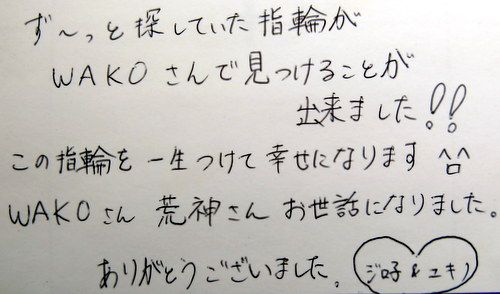 ず〜っと探していた指輪が
WAKOさんで見つけることが
出来ました!!
この指輪を一生つけて幸せになります^ロ^
WAKOさん 荒神さん お世話になりました。
ありがとうございました。